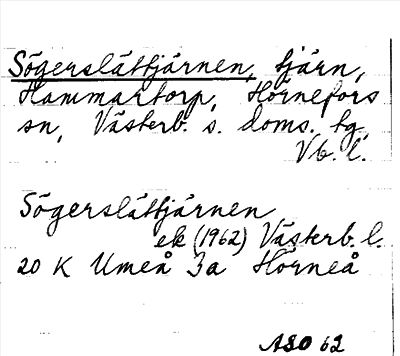 Sögerslåttjärnen, tjärn,
Hammartorp, Hörnefors
sn, Västerb. s. doms. tg,
Vb. l.
Sögerslåttjärnen
ek (1962) Västerb. l.
20 K Umeå 3a Horneå
ASO 62